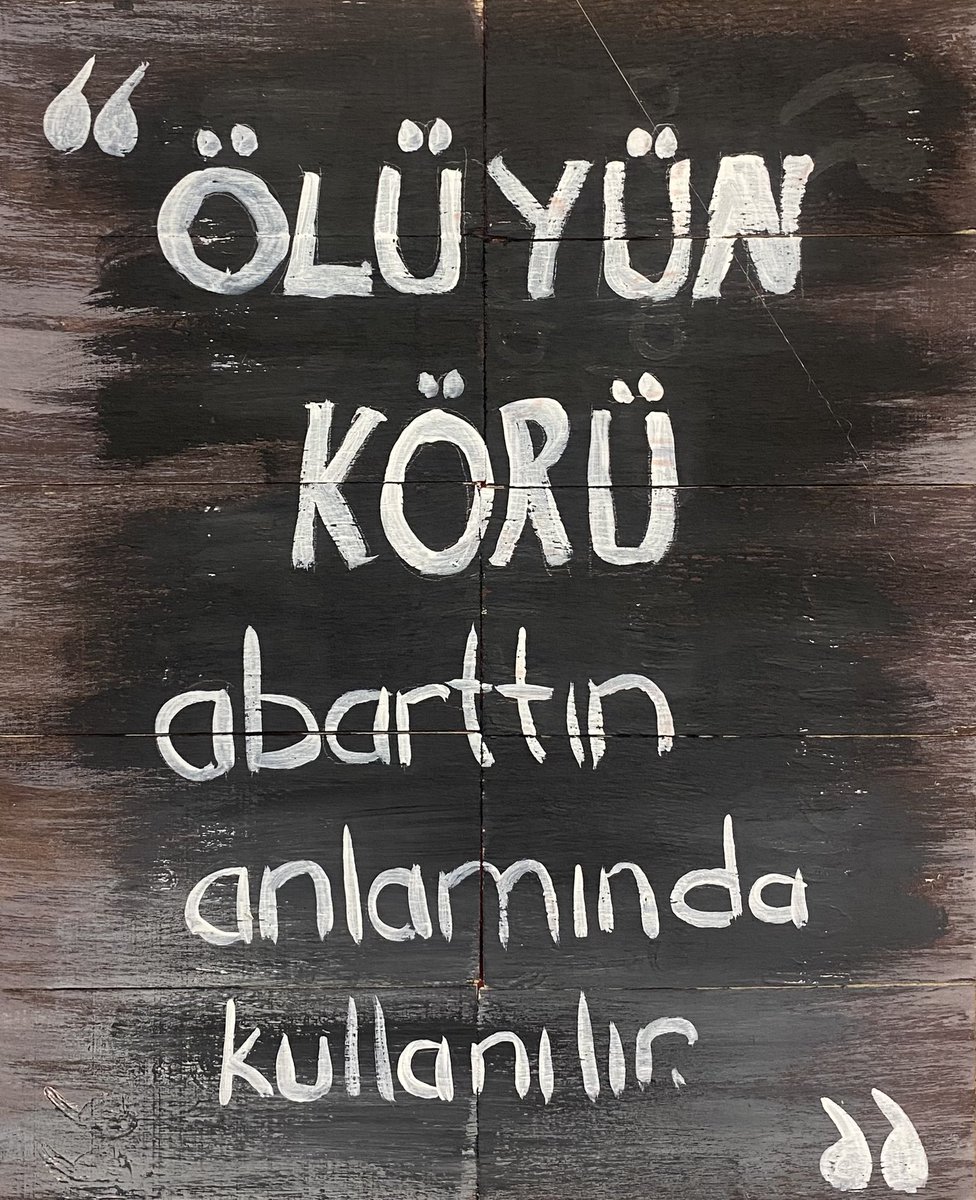 “ÖLÜYÜN
KÖRÜ
abarttın
anlamında
kullanılır.”